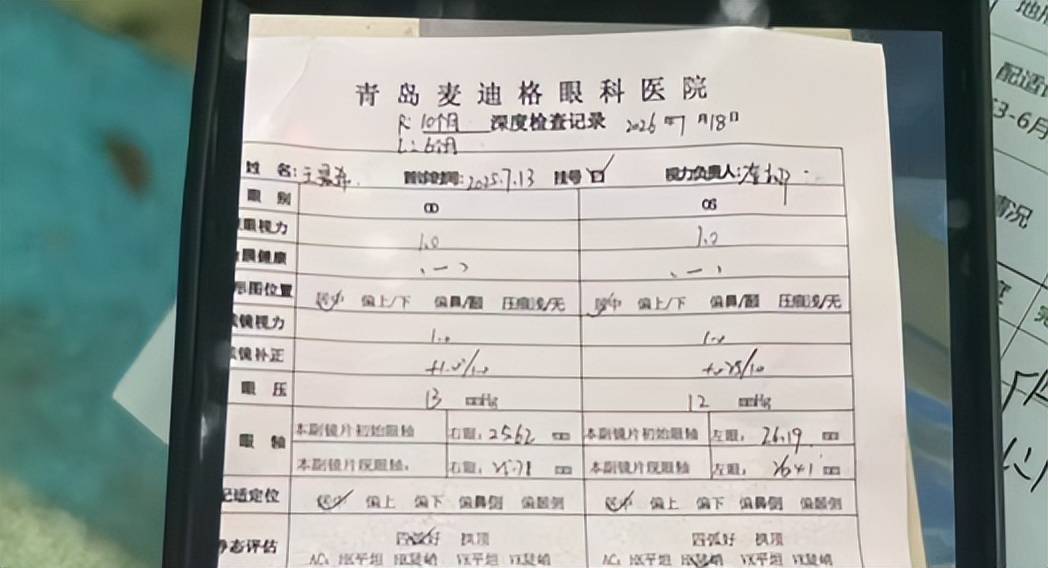 青岛麦迪格眼科医院
R: 10个月 深度检查记录 2026年7月18日
L: 6个月
姓名: 首诊时间: 2025.7.13 挂号 视力负责人:
眼别 OD OS
眼视力 1.0 1.0
眼健康 (一) (一)
形图位置 居中 偏上/下 偏鼻/颞 压痕浅/无 居中 偏上/下 偏鼻/颞 压痕浅/无
镜视力 1.0 1.0
镜补正 +1.00/1.0 +0.75/1.0
眼压 13 mmHg 12 mmHg
眼轴 本副镜片初始眼轴 右眼: 25.62 mm 本副镜片初始眼轴 左眼: 26.19 mm
本副镜片现眼轴: 右眼: 25.71 mm 本副镜片现眼轴 左眼: 26.41 mm
配适定位 居中 偏上 偏下 偏鼻侧 偏颞侧 居中 偏上 偏下 偏鼻侧 偏颞侧
静态评估 四弧好 拱顶 四弧好 拱顶
配适
3-6月
情况